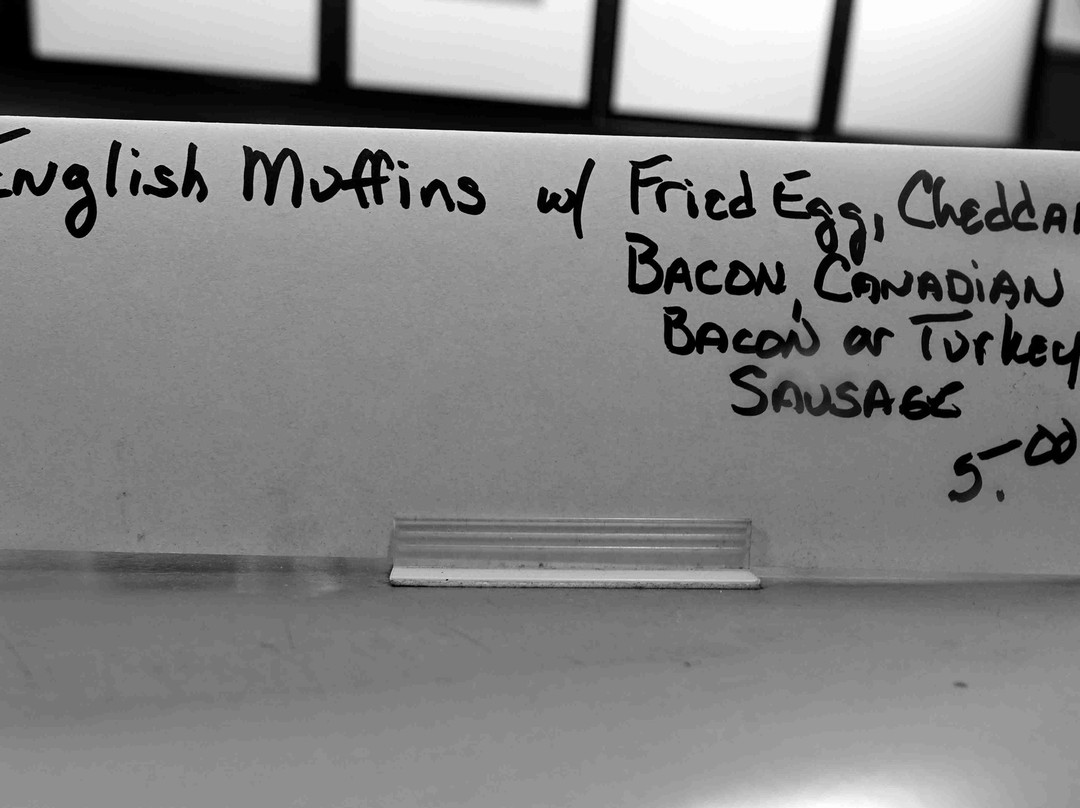 English Muffins w/ Fried Egg, Cheddar
Bacon, Canadian
Bacon or Turkey
Sausage
5.00